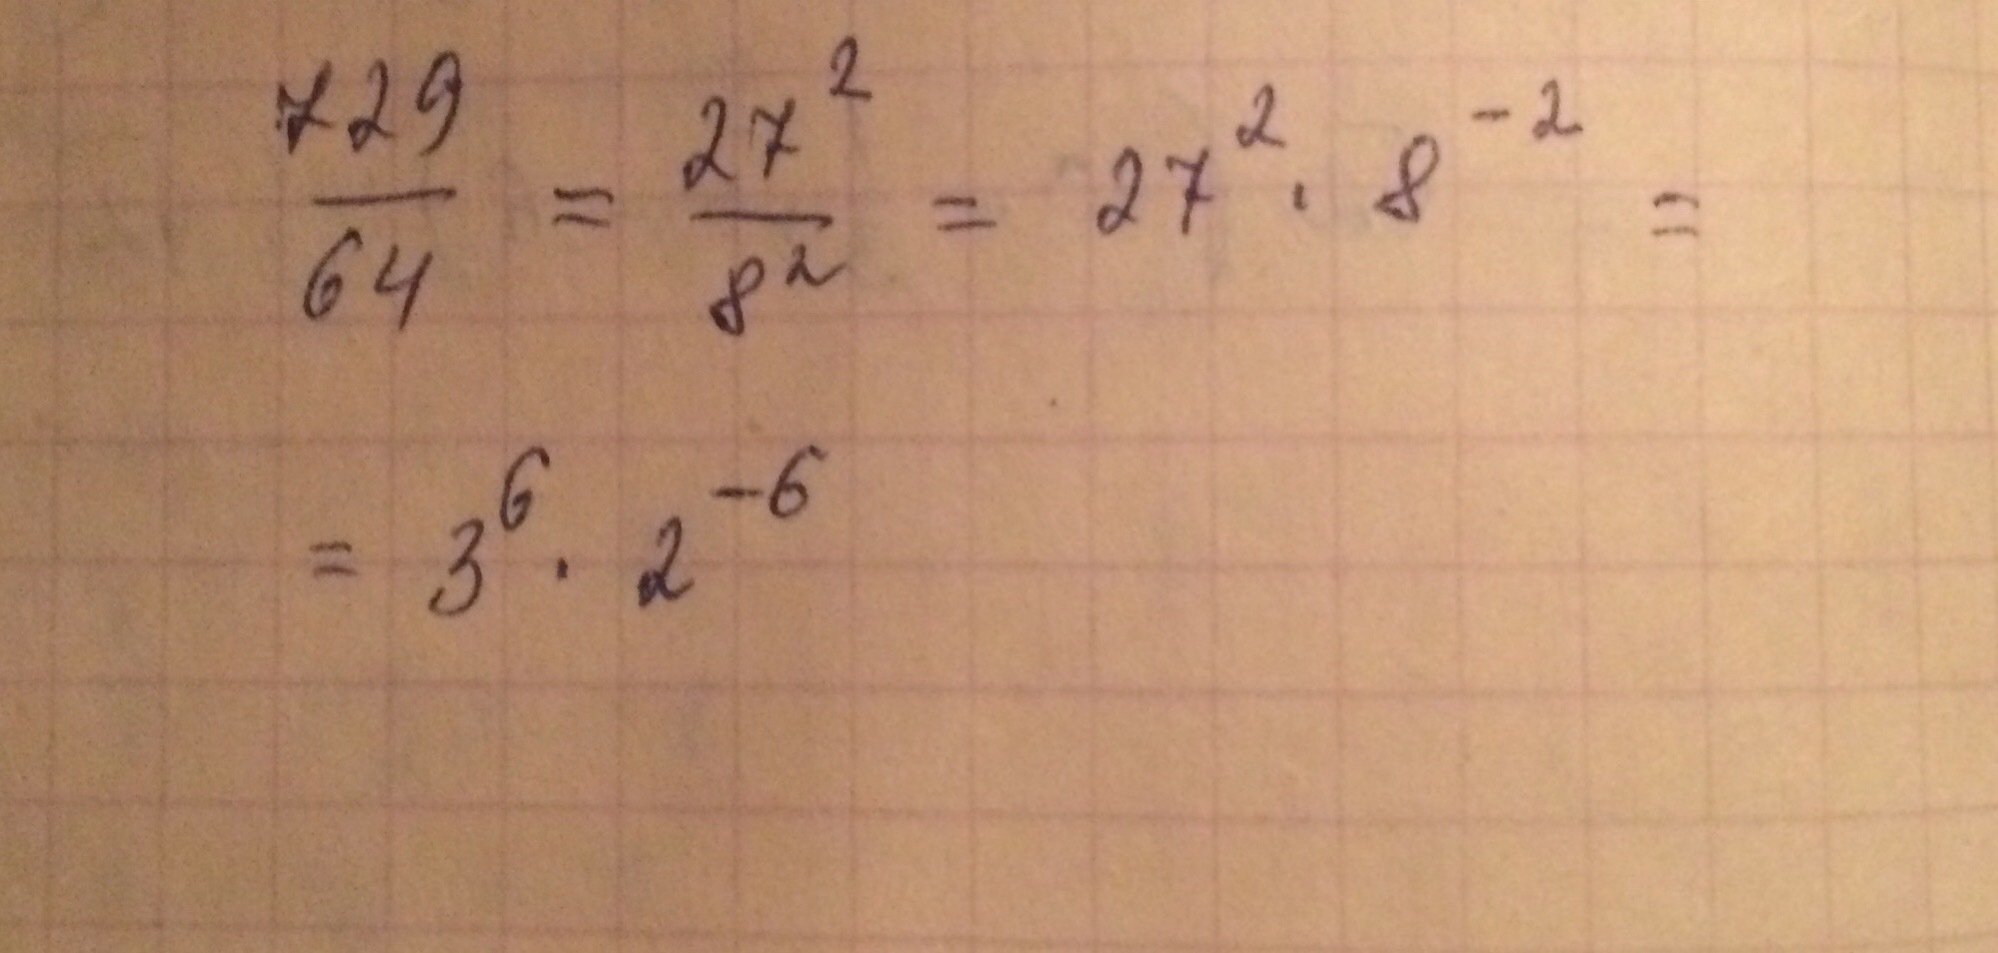 729/64 = 27²/8² = 27² · 8⁻² =
= 3⁶ · 2⁻⁶